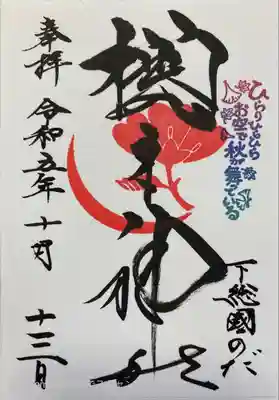 ひらりひらひら
お空で秋が舞っている
下総國のだ
櫻木神社
奉拝 令和五年 十月 十三日